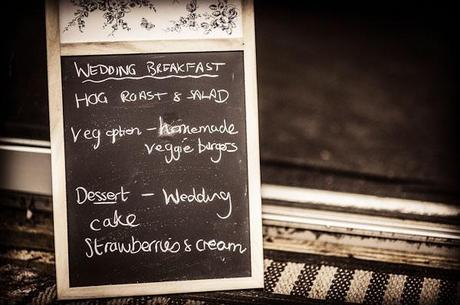 WEDDING BREAKFAST
HOG ROAST & SALAD
Veg option - homemade
veggie burgers
Dessert - Wedding
cake
Strawberries & cream